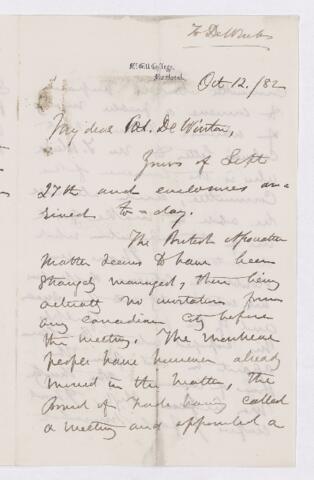 To De Winton
McGill College,
Montreal.
Oct 12. /82
My dear Col. De Winton,
Yours of Sept
27th and enclosures ar-
rived to-day.
The British Association
matter seems to have been
strangely managed, there being
actually no invitation from
any Canadian city before
the meeting. The Montreal
people have however already
moved in the matter, the
Board of Trade having called
a meeting and appointed a